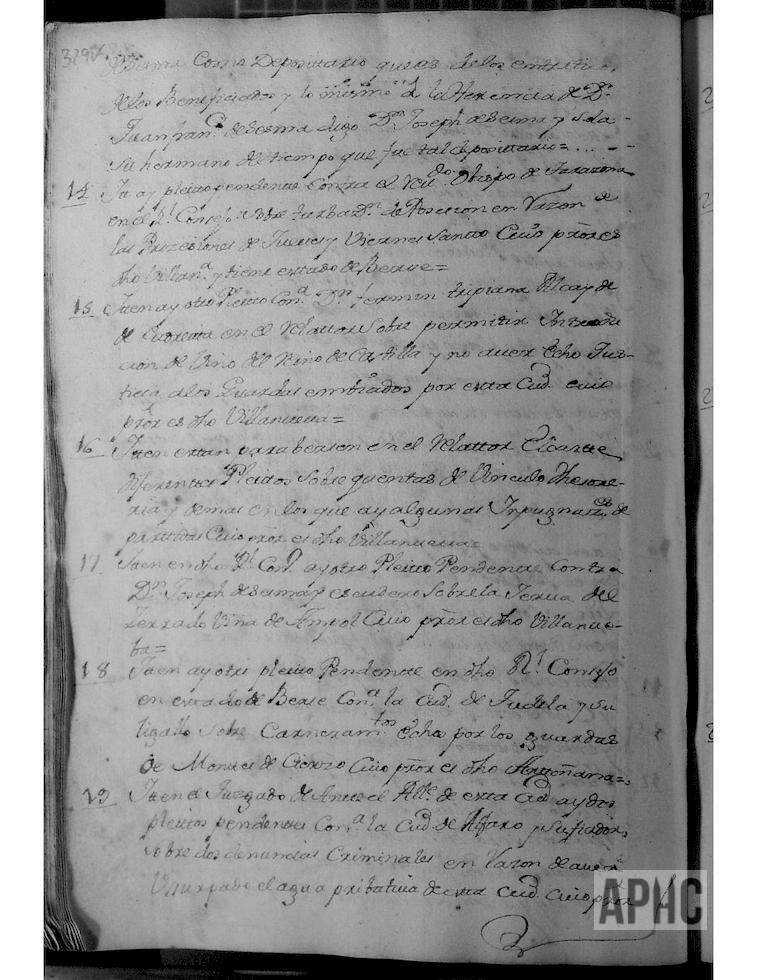 329v
Beama Como Depositario que es de los entreti-
de los Beneficiados y lo mismo a la Herencia de Dn.
Juan fran.co de Beama digo Dn. Joseph de Beama y sola-
Su hermano del tiempo que fue tal depositario=
14 Yt ay pleito pendiente Contra el Obispo de Tarazona
en el Rl. Consejo sobre turba.on de Posesion en Razon de
las Prozesiones de Jueves y Viernes Santto Cuio pror es
dho Villan.a y tiene estado de Berse=
15 Yten ay otro Pleito Con.a Dn. fermin tripiana Alcayde
de en el Relattor Sobre permitir Introdu
cion de Vino del Reino de Castilla y no aver echo Jus-
ticia a los Guardas embiados por esta Ciud. cuio
pror es dho Villanueva=
16 Yten estan para berse en el Relattor
diferentes Pleitos Sobre quentas de Vinculo thesore-
ria y demas en los que ay algunas Inpugnaz.es de
partidas Cuio pror es dho Villanueva=
17 Yten en dho Rl. Con.o ay otro Pleito Pendiente Contra
Dn. Joseph de Beama y escudero Sobre la Yerva del
Zerrado Viña de Ampol Cuio pror es dho Villanue-
ba=
18 Yten ay otro pleito Pendiente en dho Rl. Consejo
en estado de Berse Con.a la Ciud. de Tudela y Su
ligallo sobre Carneram.tos echos por los guardas
de Montes de Cierzo Cuio pror es dho
19 Yten el Juzgado de Ante el Alle. de esta Ciud ay dos
pleitos pendientes Con.a la Ciud de Alfaro y Su fiador
sobre dos denuncias Criminales en Razon de aver
Usurpado el agua pribativa de esta Ciud. cuio pror
APHC